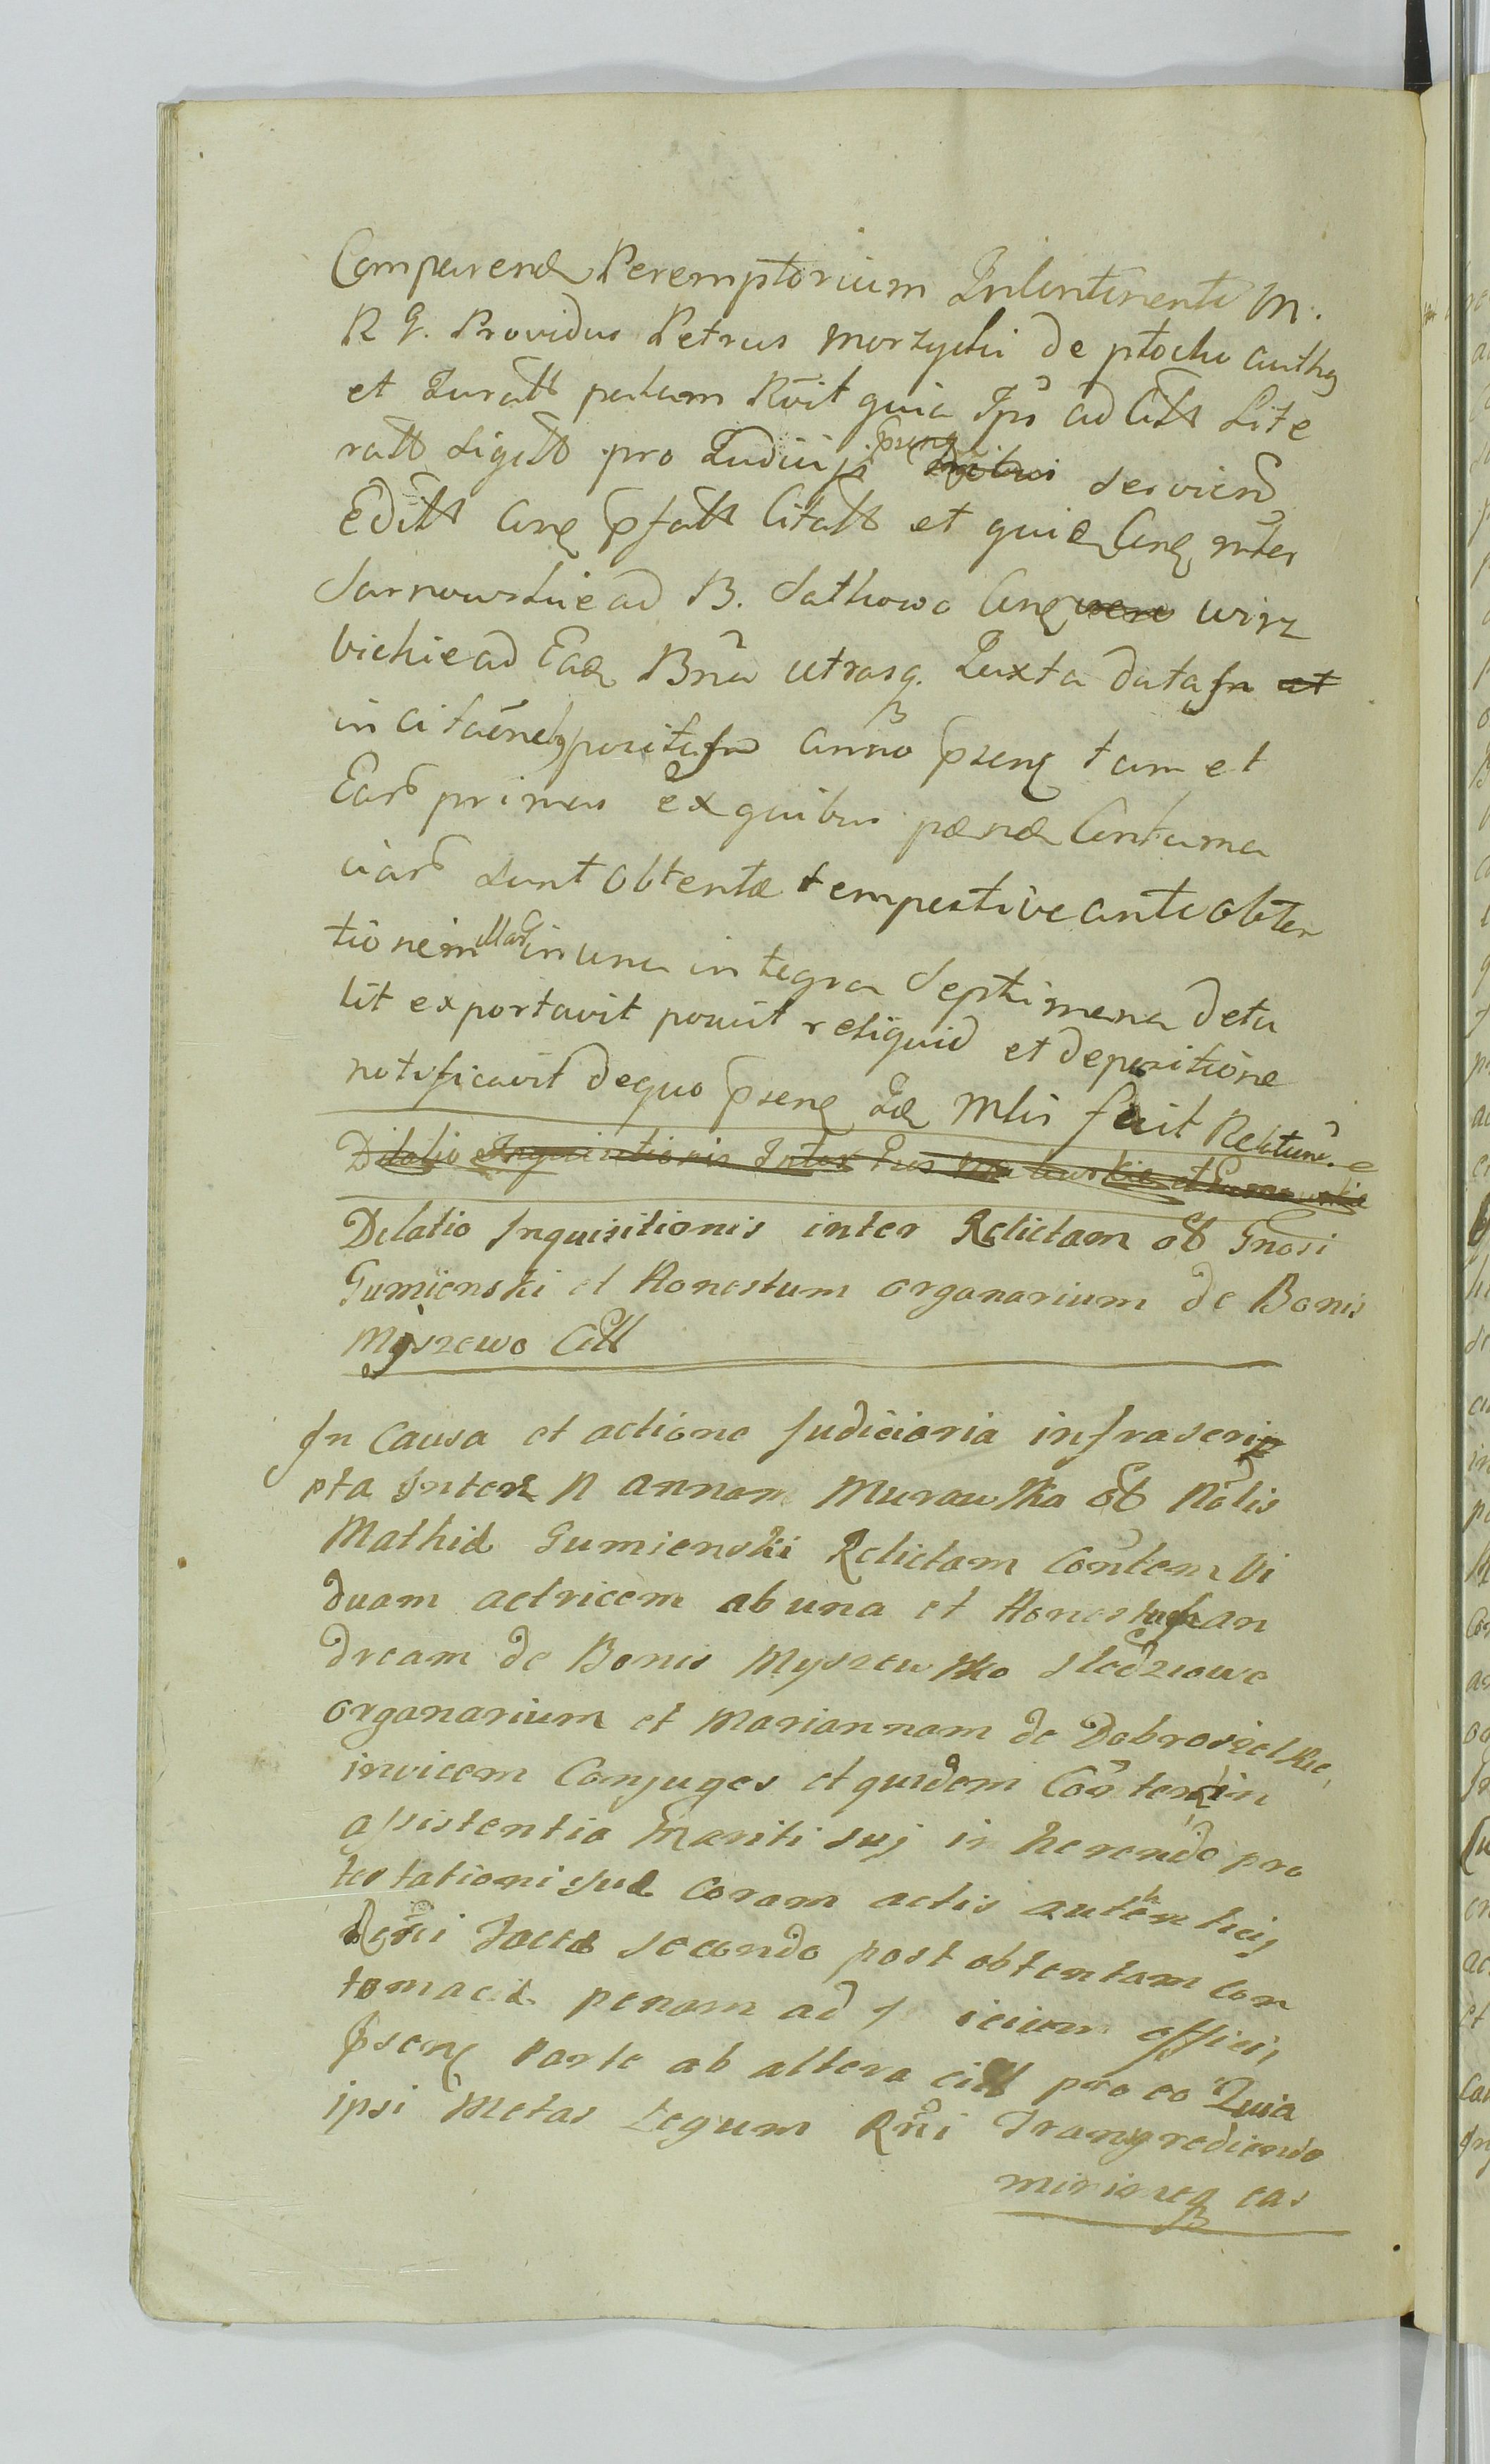 Comparend Peremptorium Instantinenti M.
R G. Providus Petrus Morzycki de Płocko auth
et Juratt palam Rvit quia Ips ad Citt Lite
ratt Sigill pro Judicijs psenq serviend
Editt pfatt Citatt et quia inter
Sarnowskie ad B. Sathowo Wirz
bickie ad Ead Bna utrasq. Juxta datafn et
in citaõne positafn anno psenq tam et
Ears primas ex quibus pænæ Contuma
ciars sunt obtentæ tempestive ante obten
tionem illars in una integra Septimana detu
lit exportavit posuit reliquid et depositione
notificavit de quo psenq Mtis fecit Relatune
Dilatio Inquisitionis Inter
Dilatio Inquisitionis inter Relictam ol Gnosi
Gumienski et Honestum organarium de Bonis
Myszewo Citt
In Causa et actione Judiciaria infrascrip
pta Inter N annam Murawska ol Nolis
Mathiæ Gumienski Relictam Conlem Vi
duam actricem ab una et Honestum an
dream de Bonis Myszewsko Sledziowe
organarium et Mariannam de Dobroszelskie,
invicem Conjuges et quidem Conlem in
assistentia Mariti suj in herendo pro
testationi suæ Coram actis authenticis
Rgni factæ secundo post obtentam con
tomaciæ penam ad officij
psenq Parte ab altera citt pro eo Quia
ipsi Metas Legum Rni Transgrediendo
minisneq eas